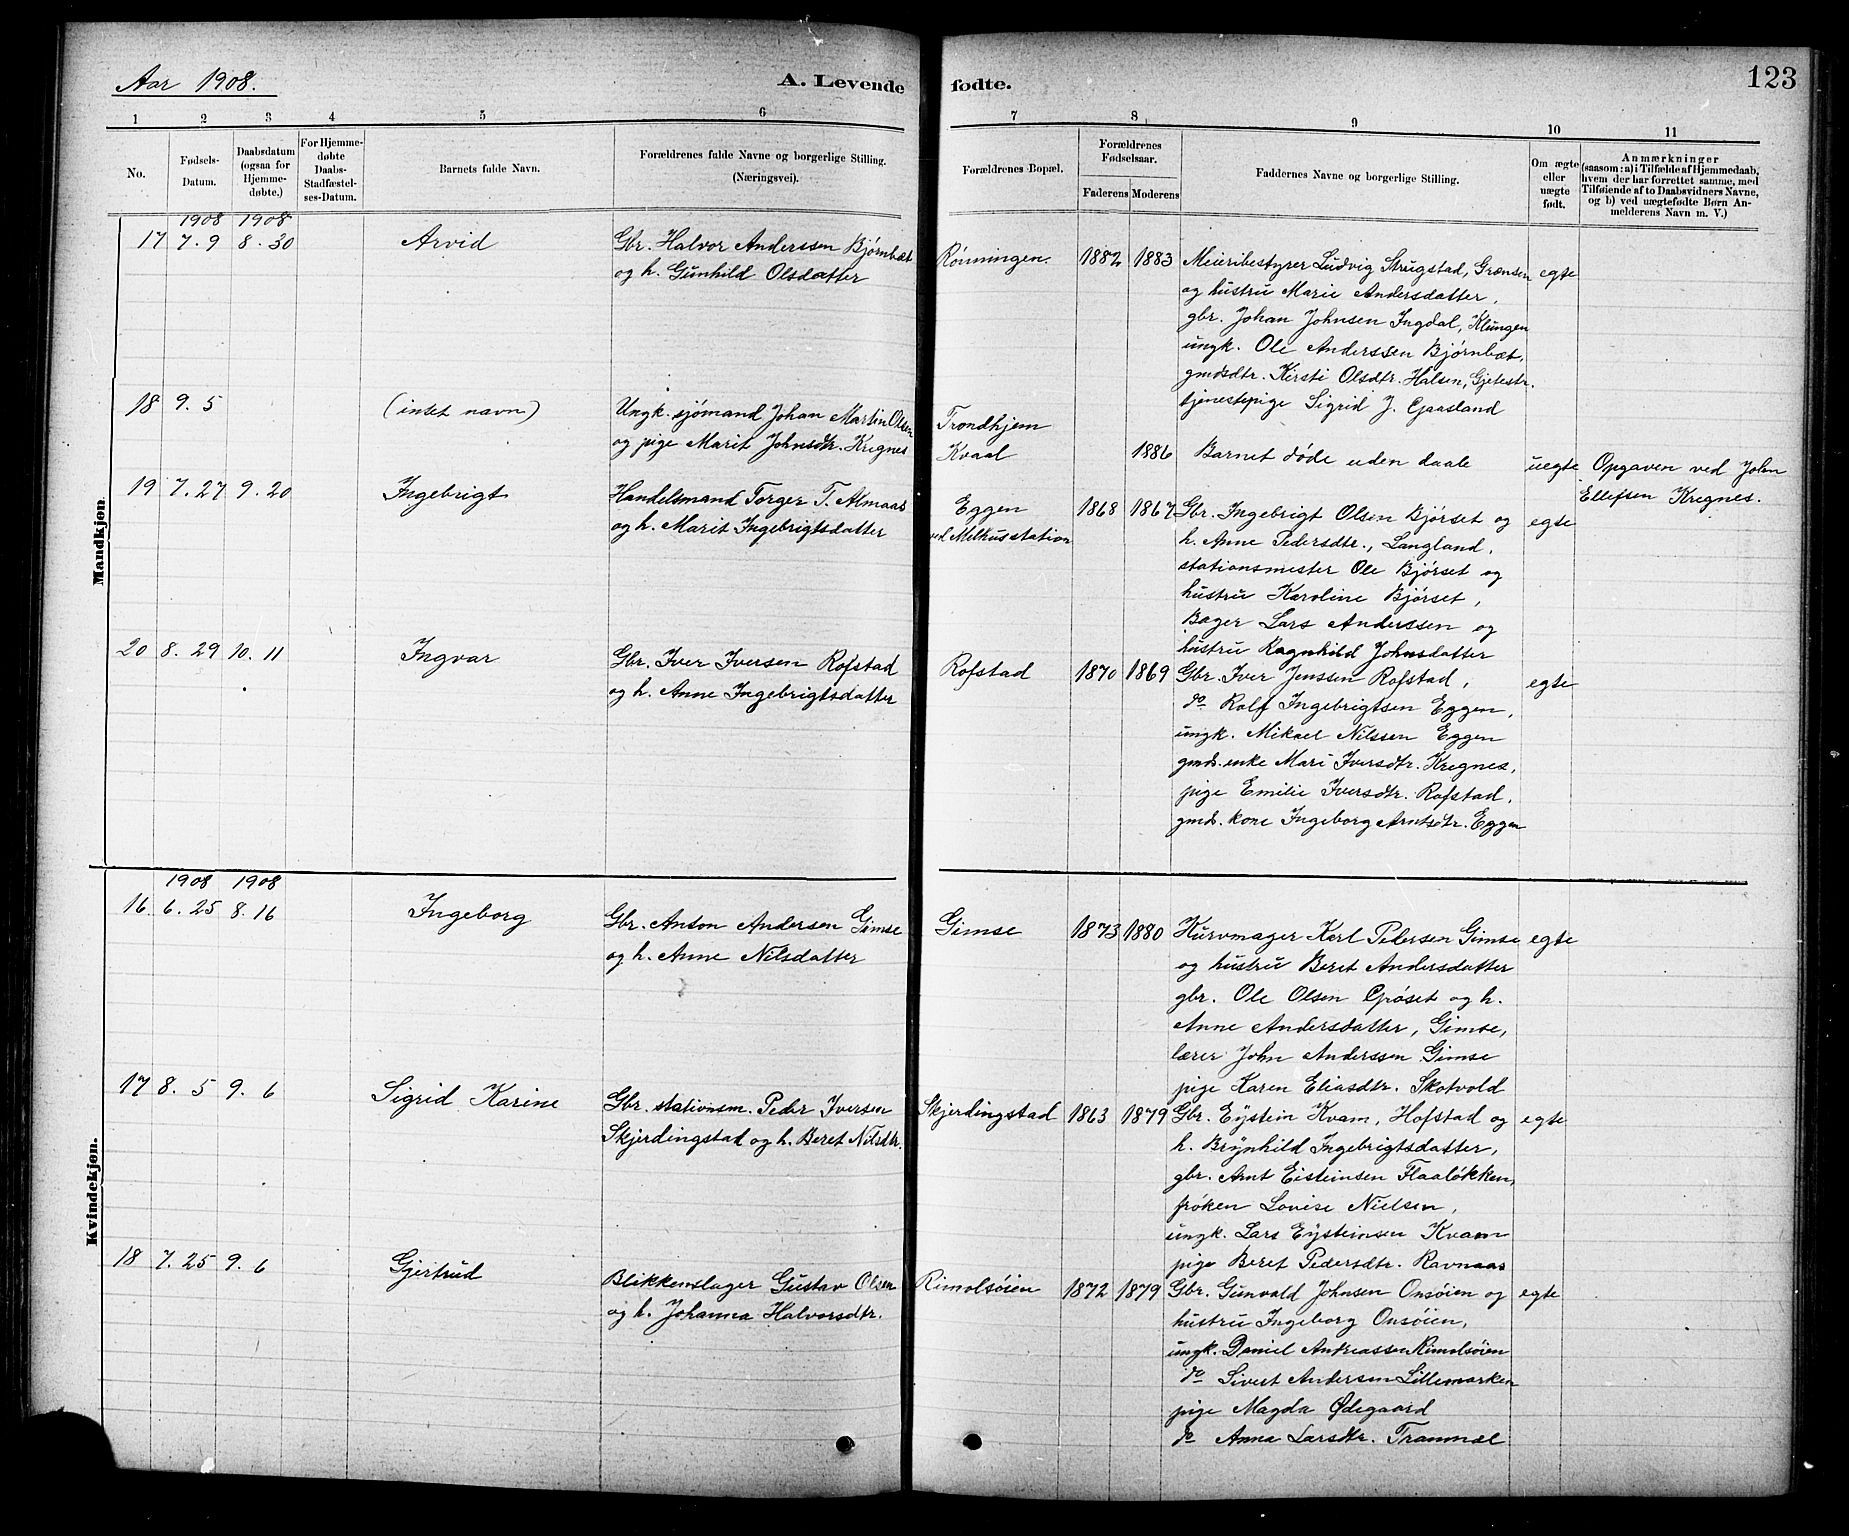 Aar 1908.
A. Levende fødte.
123
1 2 3 4 5 6 7 8 9 10 11
No.
Fødsels-Datum.
Daabsdatum (ogsaa for Hjemme-døbte.)
For Hjemme-døbte Daabs-Stadfæstel-ses-Datum.
Barnets fulde Navn.
Forældrenes fulde Navne og borgerlige Stilling. (Næringsvei).
Forældrenes Bopæl.
Forældrenes Fødselsaar.
Faderens Moderens
Faddernes Navne og borgerlige Stilling.
Om ægte eller uægte født.
Anmærkninger
(saasom: a) i Tilfælde af Hjemmedaab,
hvem der har forrettet samme, med
Tilføiende af to Daabsvidners Navne,
og b) ved uægtefødte Børn An-
melderens Navn m. V.)
Mandkjøn
1908 1908
17 7.9 8.30 Arvid
Gbr. Halvor Anderssen Bjørnbæt
og h. Gunhild Olsdatter
Rønningen 1882 1883
Meieribestyrer Ludvig Strugstad, Grænsen
og hustru Marie Andersdatter,
gbr. Johan Johnsen Ingdal, Klungen
ungk. Ole Anderssen Bjørnbæt,
gmdsdtr. Kirsti Olsdtr. Halsen, Gjetestr.
tjenestepige Sigrid J. Gaasland
egte
18 9.5 (intet navn)
Ungk. sjømand Johan Martin Olsen
og pige Marit Johnsdtr. Kregnes
Trondhjem
Kvaal 1886
Barnet døde uden daab
uegte
Opgaven ved John
Ellefsen Kregnes.
19 7.27 9.20 Ingebrigt
Handelsmand Torger T. Almaas
og h. Marit Ingebrigtsdatter
Eggen
ved Melhus station
1868 1867
Gbr. Ingebrigt Olsen Bjørset og
h. Anne Pedersdtr., Langland,
stationsmester Ole Bjørset og
hustru Karoline Bjørset,
Bager Lars Anderssen og
hustru Ragnhild Johnsdatter
egte
20 8.29 10.11 Ingvar
Gbr. Iver Iversen Rofstad
og h. Anne Ingebrigtsdatter
Rofstad 1870 1869
Gbr. Iver Jenssen Rofstad,
do Rolf Ingebrigtsen Eggen,
ungk. Mikael Nilssen Eggen
gmds. enke Mari Iversdtr. Kregnes,
pige Emilie Iversdtr. Rofstad,
gmds. kone Ingeborg Arntsdtr. Eggen
egte
Kvindekjøn.
1908 1908
16 6.25 8.16 Ingeborg
Gbr. Anton Andersen Gimse
og h. Anne Nilsdatter
Gimse 1873 1880
Kurvmager Karl Pedersen Gimse
og hustru Beret Andersdatter
gbr. Ole Olsen Grøset og h.
Anne Andersdatter, Gimse,
lærer John Anderssen Gimse
pige Karen Eliasdtr. Skotvold
egte
17 8.5 9.6 Sigrid Karine
Gbr. stationsm. Peder Iversen
Skjerdingstad og h. Beret Nilsdtr.
Skjerdingstad 1863 1879
Gbr. Eystein Kvam, Hofstad og
h. Brynhild Ingebrigtsdatter,
gbr. Arnt Eisteinsen Flaaløkken,
frøken Lovise Nielsen,
ungk. Lars Eysteinsen Kvam
pige Beret Pedersdtr. Ravnaas
egte
18 7.25 9.6 Gjertrud
Blikkenslager Gustav Olsen
og h. Johanna Halvorsdtr.
Rimolsøien 1872 1879
Gbr. Gunvald Johnsen Onsøien og
hustru Ingeborg Onsøien,
ungk. Daniel Andreassen Rimolsøien
do Sivert Andersen Lillemarken
pige Magda Ødegaard
do Anna Larsdtr. Tranmæl
egte